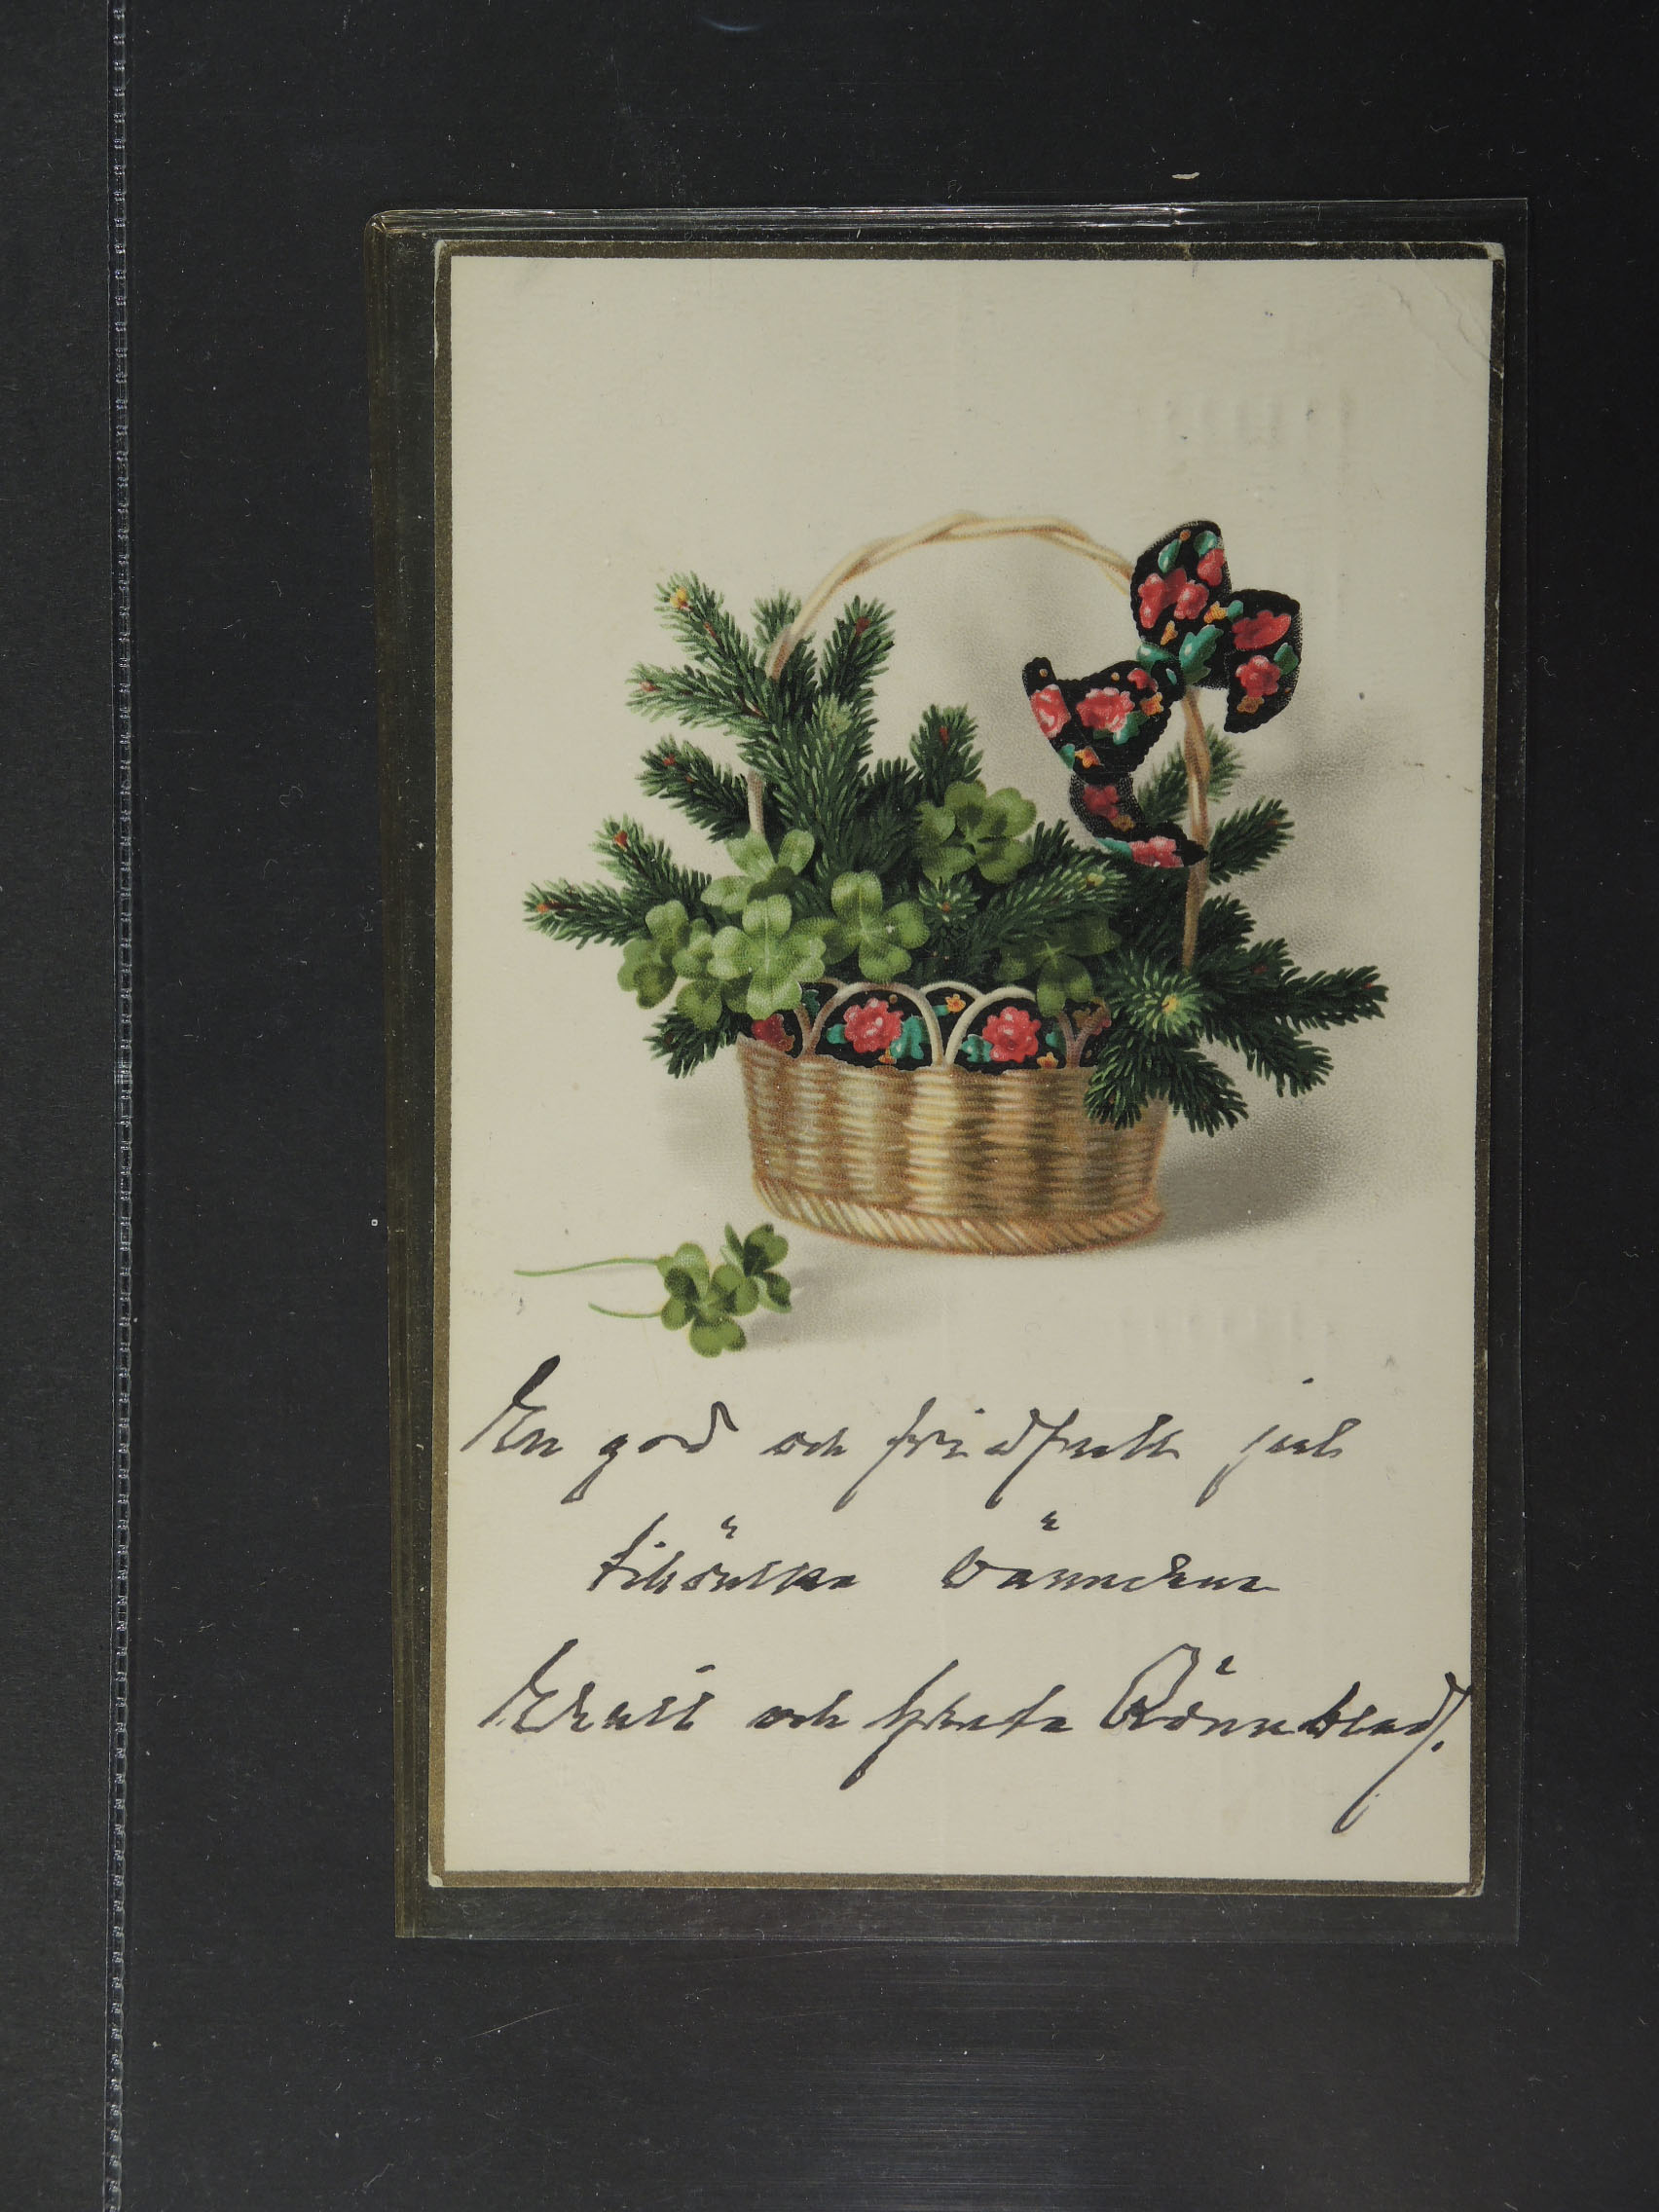 En god och fridfull jul
tillönska vännerna
och Greta Rönnblad.